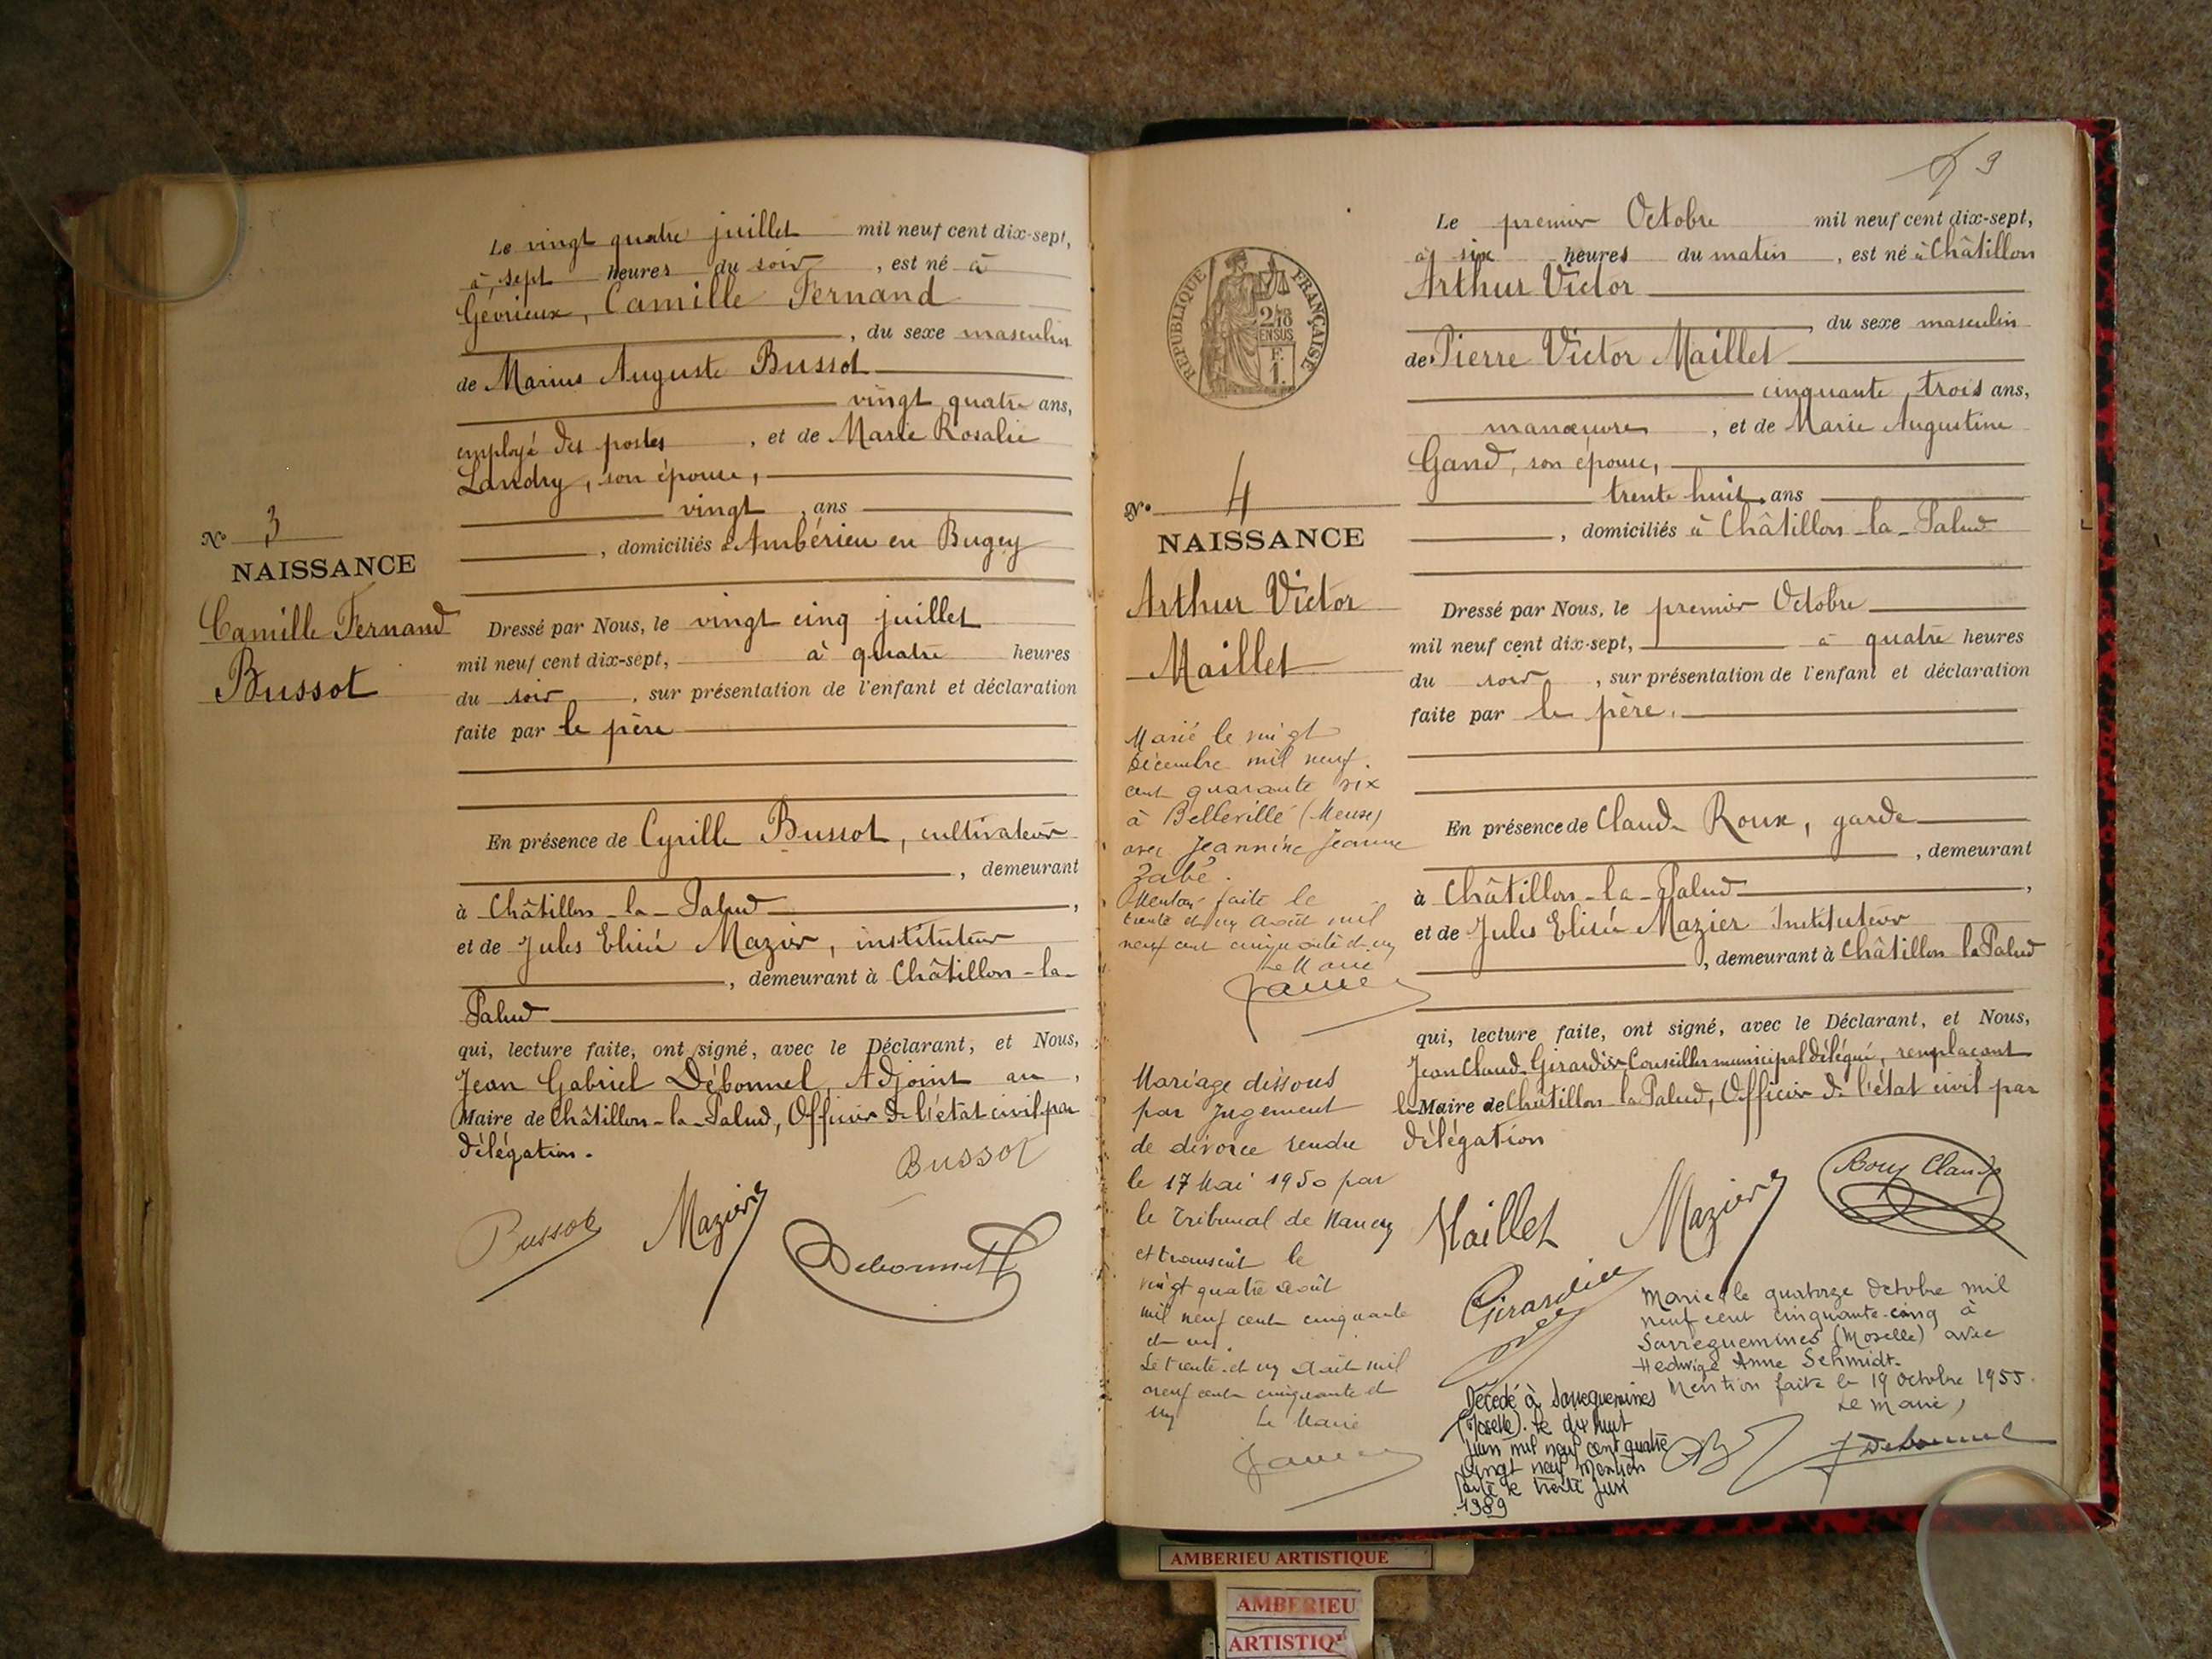 Le vingt quatre juillet mil neuf cent dix-sept,
à sept heures du soir, est né à
Gévrieux, Camille Fernand
, du sexe masculin
de Marius Auguste Bussot
vingt quatre ans,
employé des postes, et de Marie Rosalie
Landry, son épouse,
vingt ans
, domiciliés à Ambérieu en Bugey
N° 3
NAISSANCE
Camille Fernand
Bussot
Dressé par Nous, le vingt cinq juillet
mil neuf cent dix-sept, à quatre heures
du soir, sur présentation de l'enfant et déclaration
faite par le père
En présence de Cyrille Bussot, cultivateur
, demeurant
à Châtillon-la-Palud,
et de Jules Elisée Mazier, instituteur
, demeurant à Châtillon-la-
Palud
qui, lecture faite, ont signé, avec le Déclarant, et Nous,
Jean Gabriel Débonnel, Adjoint au
Maire de Châtillon-la-Palud, Officier de l'état civil par
délégation.
Bussot
Bussot Mazier
Debonnel
9
Le premier Octobre mil neuf cent dix-sept,
à six heures du matin, est né à Châtillon
Arthur Victor
, du sexe masculin
de Pierre Victor Maillet
cinquante trois ans,
manœuvre, et de Marie Augustine
Gand, son épouse,
trente huit ans
, domiciliés à Châtillon-la-Palud
RÉPUBLIQUE FRANÇAISE
2/10
EN SUS
F.
1.
N° 4
NAISSANCE
Arthur Victor
Maillet
Dressé par Nous, le premier Octobre
mil neuf cent dix-sept, à quatre heures
du soir, sur présentation de l'enfant et déclaration
faite par le père.
En présence de Claude Roux, garde
, demeurant
à Châtillon-la-Palud,
et de Jules Elisée Mazier Instituteur
, demeurant à Châtillon la Palud
qui, lecture faite, ont signé, avec le Déclarant, et Nous,
Jean Claude Girardin Conseiller municipal délégué, remplaçant
le Maire de Châtillon la Palud, Officier de l'état civil par
délégation
Marié le vingt
décembre mil neuf
cent quarante six
à Belleville (Meuse)
avec Jeannine Jeanne
Zabé.
Mention faite le
trente et un août mil
neuf cent cinquante et un
Le Maire
Mariage dissous
par Jugement
de divorce rendu
le 17 Mai 1950 par
le Tribunal de Nancy
et transcrit le
vingt quatre août
mil neuf cent cinquante
et un.
Le trente et un août mil
neuf cent cinquante et
un Le Maire
Maillet Mazier Roux Claude
Girardin
Marié le quatorze octobre mil
neuf cent cinquante-cinq à
Sarreguemines (Moselle) avec
Hedwige Anne Schmidt.
Mention faite le 19 octobre 1955.
Le Maire,
Debonnel
Décédé à Sarreguemines
(Moselle). le dix huit
juin mil neuf cent quatre
vingt neuf Mention
faite le trente juin
1989
AMBERIEU ARTISTIQUE
AMBERIEU
ARTISTIQ